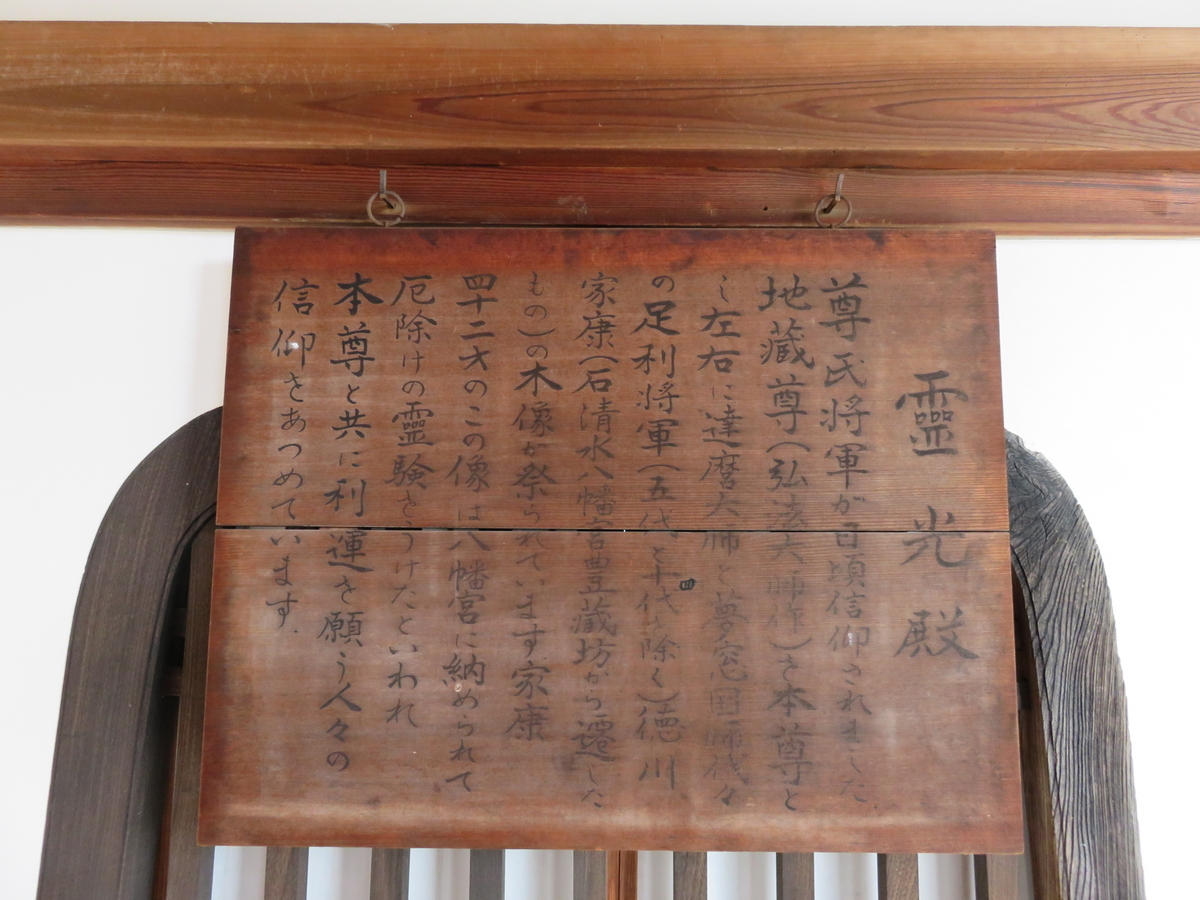 靈光殿
尊氏將軍が日頃信仰されました
地蔵尊(弘法大師作)を本尊と
し左右に達磨大師と夢窓国師代々
の足利将軍(五代と十四代を除く)徳川
家康(石清水八幡宮豊蔵坊から遷した
もの)の木像が祭られています.家康
四十二才のこの像は八幡宮に納められて
厄除けの靈験をうけたといわれ
本尊と共に利運を願う人々の
信仰をあつめています.